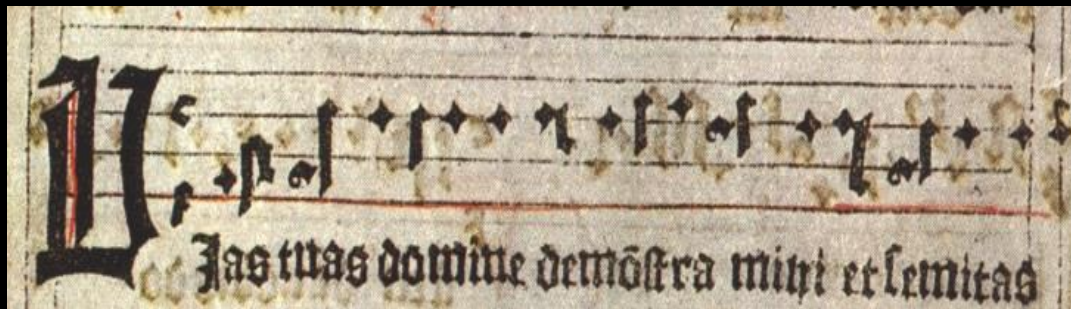 VJas tuas domine demōstra mihi et semitas